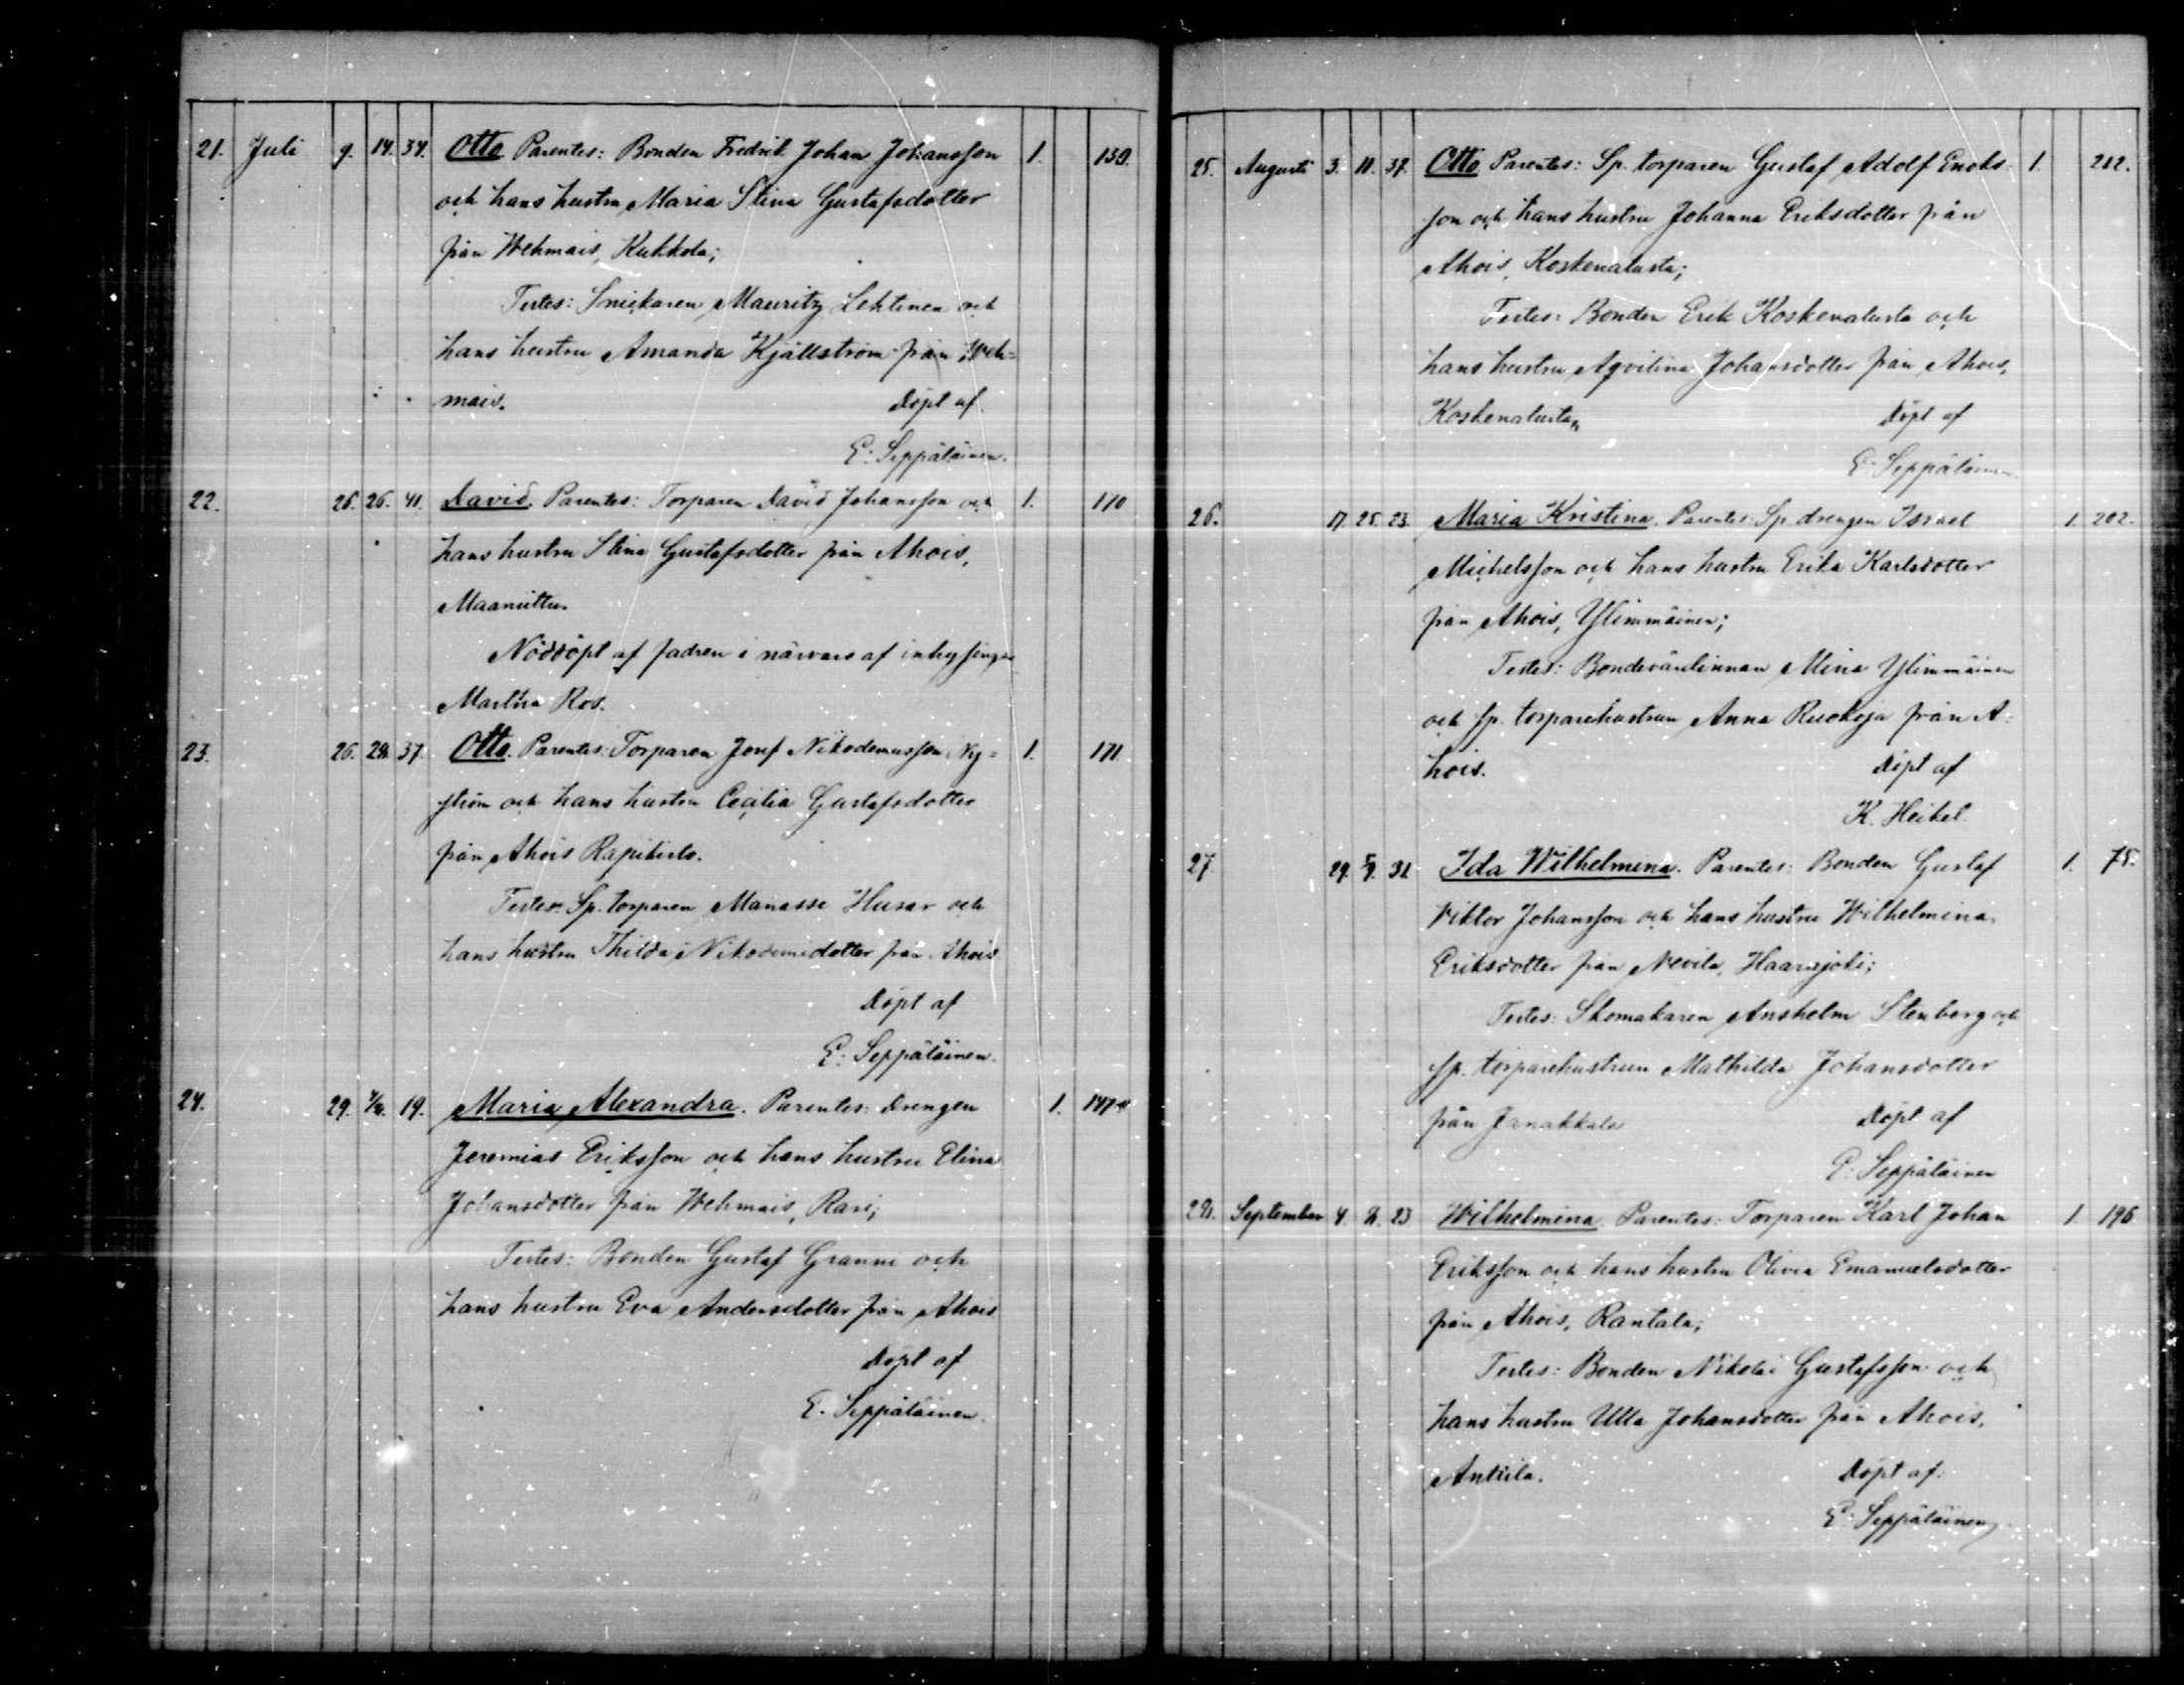 21. Juli 9. 14. 34. Otto. Parentes: Bonden Fredrik Johan Johansson 1. 130.
och hans hustru Maria Stina Gustafsdotter
från Wehmais, Kukkola;
Testes: Snickaren Mauritz Lehtinen och
hans hustru Amanda Kjällström från Weh=
mais. Döpt af
E. Seppäläinen.
22. 26. 41. David. Parentes: Torparen David Johansson och 1. 110
hans hustru Stina Gustafsdotter från Ahois,
Maanittu.
Nöddöpt af fadren i närvaro af inhysingen
Martha Ros.
23. 26. 37. Otto. Parentes: Torparen Josef Nikodemusson Ny=
ström och hans hustru Cecilia Gustafsdotter
från Ahois Rapihisto.
Testes: Sp. torparen Manasse Husar och
hans hustru Thilda Nikodemidotter från Ahois
Döpt af
E. Seppäläinen.
24. 29. 19. Maria Alexandra. Parentes: Drengen 1.
Jeremias Eriksson och hans hustru Elina
Johansdotter från Wehmais, Rasi;
Testes: Bonden Gustaf Granni och
hans hustru Eva Andersdotter från Ahois
Döpt af
E. Seppäläinen.
25. Augusti 3. 37. Otto. Parentes: Sp. torparen Gustaf Adolf Enoks- 1. 202.
son och hans hustru Johanna Eriksdotter från
Ahois, Koskenalusta;
Testes: Bonden Erik Koskenalusta och
hans hustru Aqvilina Johansdotter från Ahois,
Koskenalusta. Döpt af
E. Seppäläinen.
26. 17. 25. 23. Maria Kristina. Parentes: Sp. drengen Israel 1. 202.
Michelsson och hans hustru Erika Karlsdotter
från Ahois, Ylimmäinen;
Testes: Bondevärdinnan Mina Ylimmäinen
och sp. torparehustrun Anna Ruokoja från A=
hois. Döpt af
K. Heikel.
27. 29. 5/9. 31. Ida Wilhelmina. Parentes: Bonden Gustaf 1. 75.
Viktor Johansson och hans hustru Wilhelmina
Eriksdotter från Nevila, Haarajoki;
Testes: Skomakaren Anshelm Stenberg och
sp. torparehustrun Mathilda Johansdotter
från Janakkala Döpt af
E. Seppäläinen
28. September 4. 8. 23 Wilhelmina. Parentes: Torparen Karl Johan 1. 196
Eriksson och hans hustru Olivia Emanuelsdotter
från Ahois, Rantala;
Testes: Bonden Nikolai Gustafsson och
hans hustru Ulla Johansdotter från Ahois,
Anttila. Döpt af
E. Seppäläinen